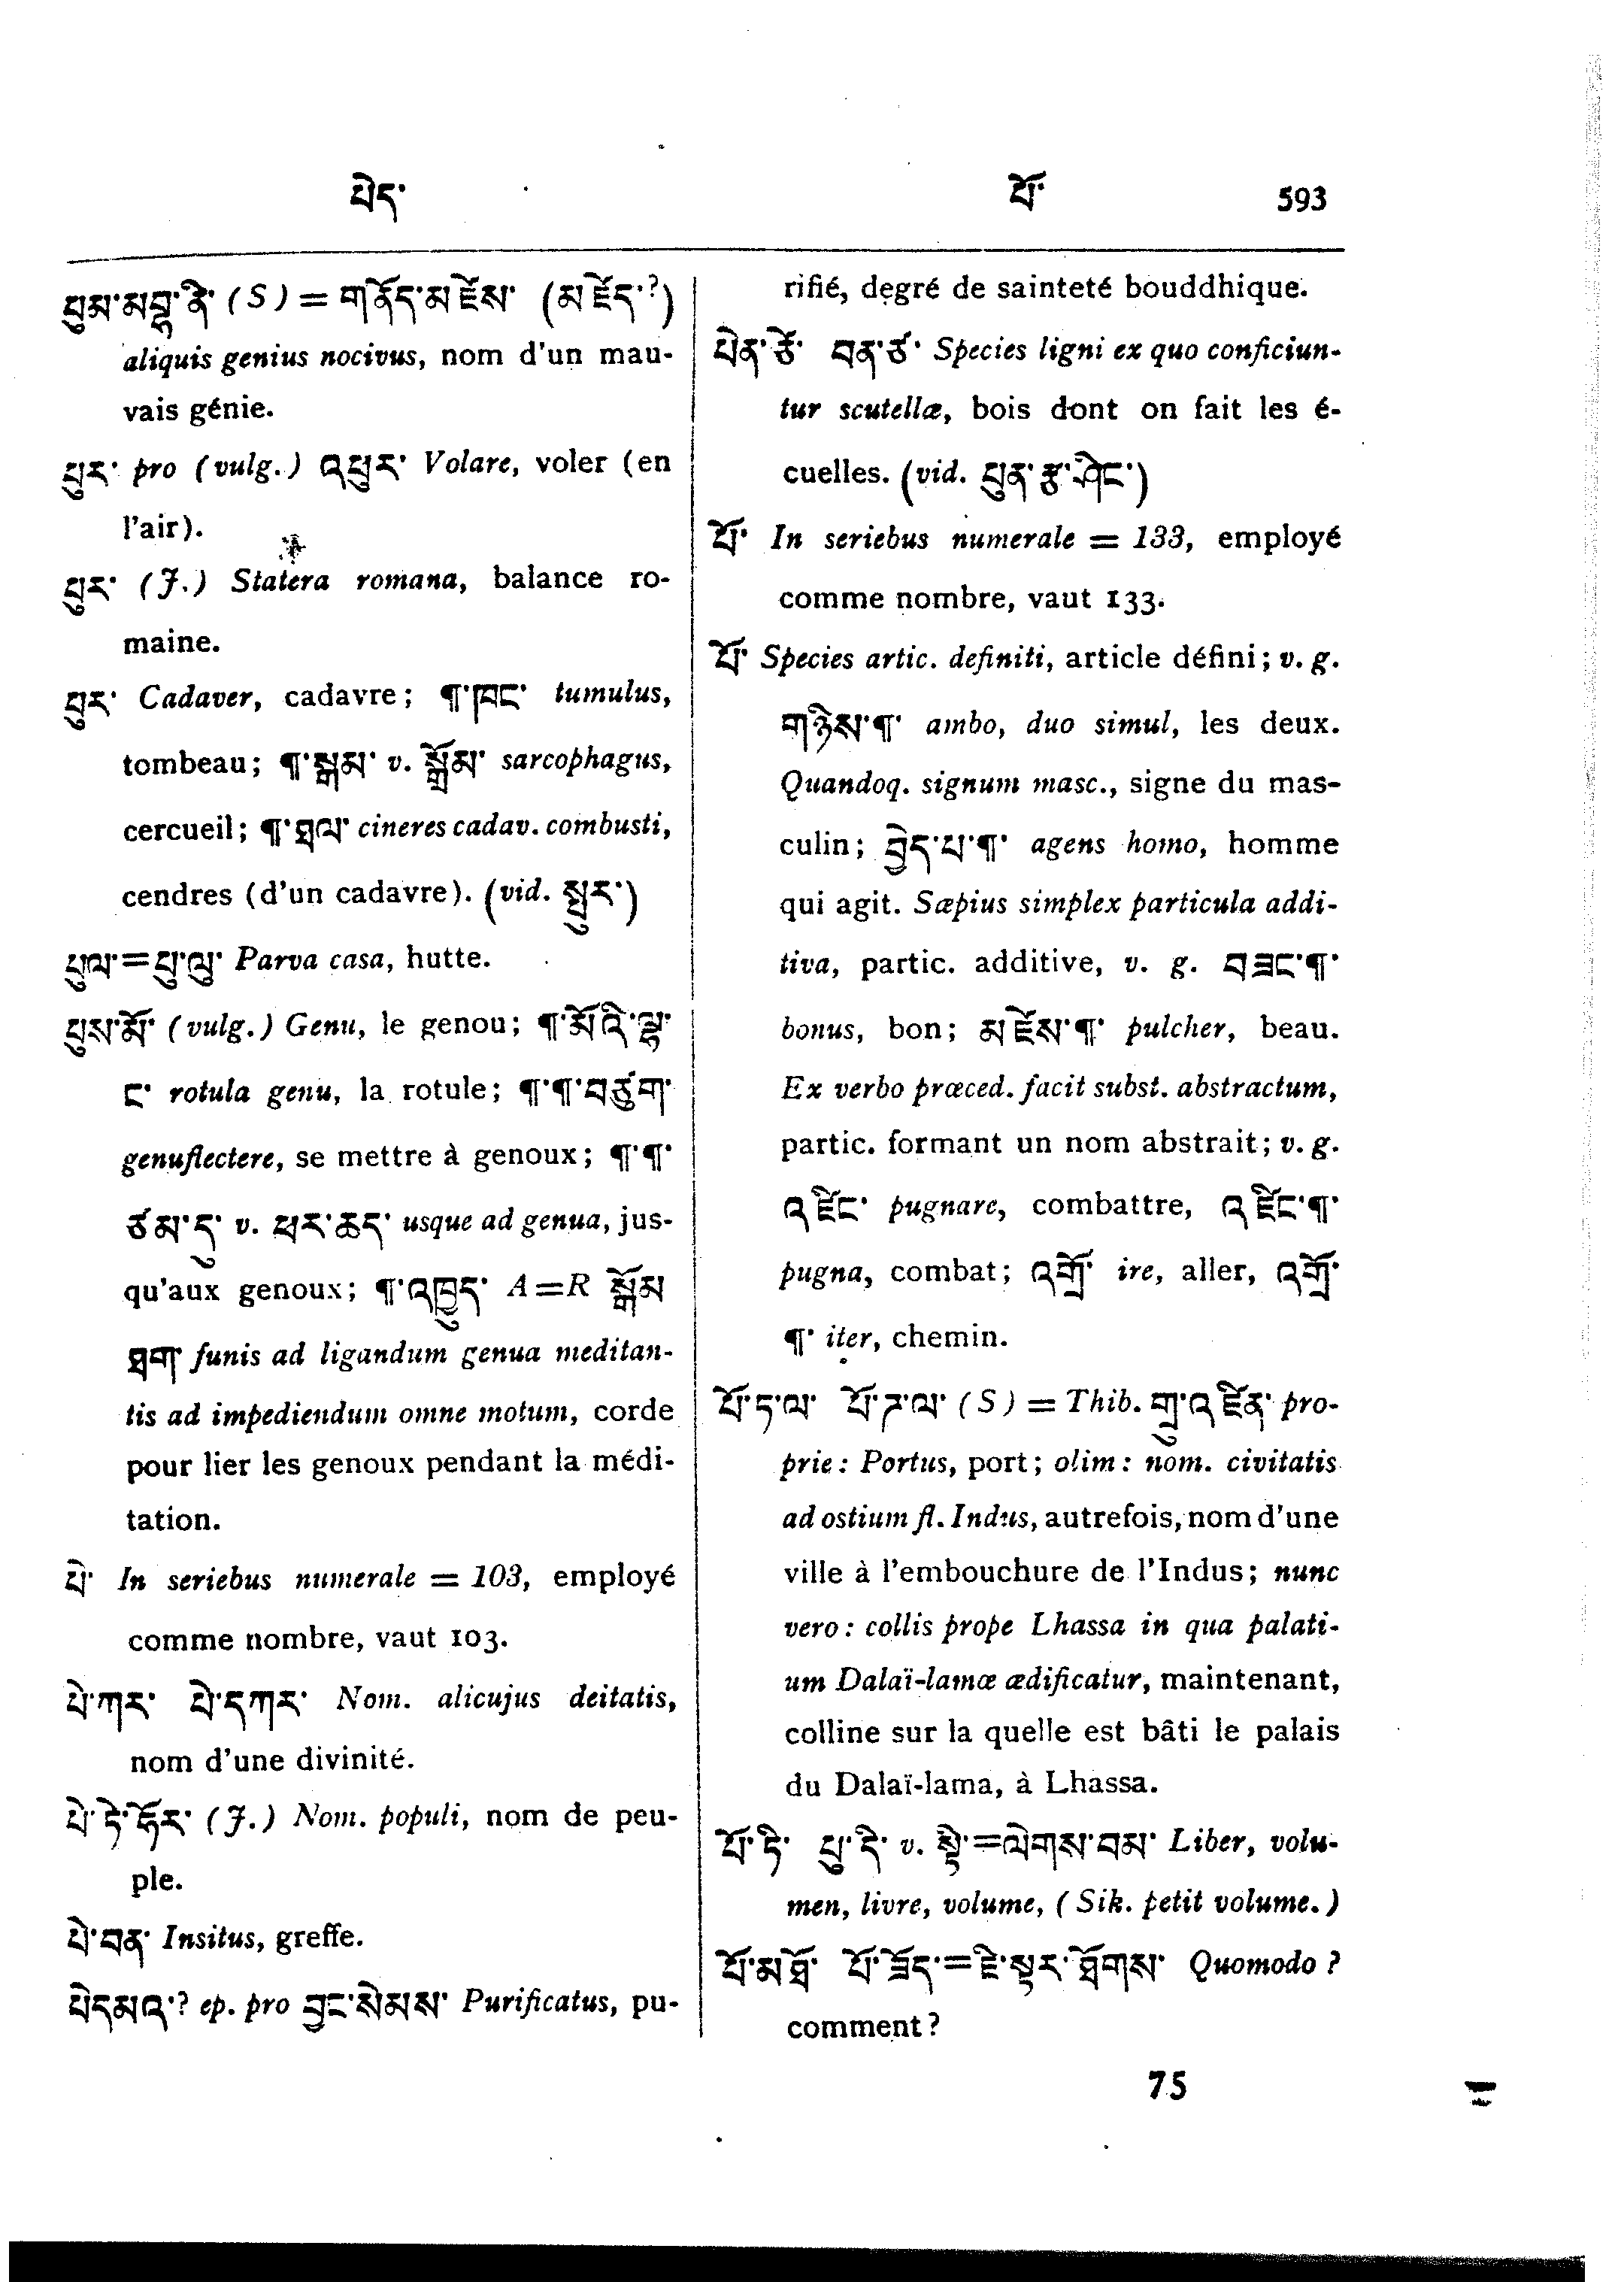 པེད་ པོ་ 593
པུམ་མབྷ་ནི་ (S) = གནོད་མཛེས་ (མཛེད་?)
aliquis genius nocivus, nom d'un mau-
vais génie.
པུར་ pro (vulg.) འཕུར་ Volare, voler (en
l'air).
པུར་ (J.) Statera romana, balance ro-
maine.
པུར་ Cadaver, cadavre; ¶་ཁང་ tumulus,
tombeau; ¶་སྒམ་ v. སྒྲོམ་ sarcophagus,
cercueil; ¶་ཐལ་ cineres cadav. combusti,
cendres (d'un cadavre). (vid. སྤུར་)
པུལ་=པུ་ལུ་ Parva casa, hutte.
པུས་མོ་ (vulg.) Genu, le genou; ¶་མོའི་ལྷ་
ང་ rotula genu, la rotule; ¶་¶་བཙུག་
genuflectere, se mettre à genoux; ¶་¶་
ཙམ་དུ་ v. ཕར་ཆད་ usque ad genua, jus-
qu'aux genoux; ¶་འཁྱུད་ A=R སྒོམ
ཐག་ funis ad ligandum genua meditan-
tis ad impediendum omne motum, corde
pour lier les genoux pendant la médi-
tation.
པེ་ In seriebus numerale = 103, employé
comme nombre, vaut 103.
པེ་ཀར་ པེ་དཀར་ Nom. alicujus deitatis,
nom d'une divinité.
པེ་ཏེ་ཧོར་ (J.) Nom. populi, nom de peu-
ple.
པེ་བན་ Insitus, greffe.
པེདམའ་? ep. pro བྱང་སེམས་ Purificatus, pu-
rifié, degré de sainteté bouddhique.
པེན་ཙེ་ བན་ཙ་ Species ligni ex quo conficiun-
tur scutellæ, bois dont on fait les é-
cuelles. (vid. པུན་རྩ་ཤིང་)
པོ་ In seriebus numerale = 133, employé
comme nombre, vaut 133.
པོ་ Species artic. definiti, article défini; v. g.
གཉིས་¶་ ambo, duo simul, les deux.
Quandoq. signum masc., signe du mas-
culin; བྱེད་པ་¶་ agens homo, homme
qui agit. Sæpius simplex particula addi-
tiva, partic. additive, v. g. བཟང་¶་
bonus, bon; མཛེས་¶་ pulcher, beau.
Ex verbo præced. facit subst. abstractum,
partic. formant un nom abstrait; v. g.
འཛིང་ pugnare, combattre, འཛིང་¶་
pugna, combat; འགྲོ་ ire, aller, འགྲོ་
¶་ iter, chemin.
པོ་ཏ་ལ་ པོ་ཊ་ལ་ (S) = Thib. གྲུ་འཛིན་ pro-
prie: Portus, port; olim: nom. civitatis
ad ostium fl. Indus, autrefois, nom d'une
ville à l'embouchure de l'Indus; nunc
vero: collis prope Lhassa in qua palati-
um Dalaï-lamæ ædificatur, maintenant,
colline sur la quelle est bâti le palais
du Dalaï-lama, à Lhassa.
པོ་ཏི་ པུ་ཏི་ v. སྟེ་=ལེགས་བམ་ Liber, volu-
men, livre, volume, (Sik. petit volume.)
པོ་མཐོ་ པོ་ཟོད་=ཇི་སྟར་ཐོགས་ Quomodo?
comment?
75